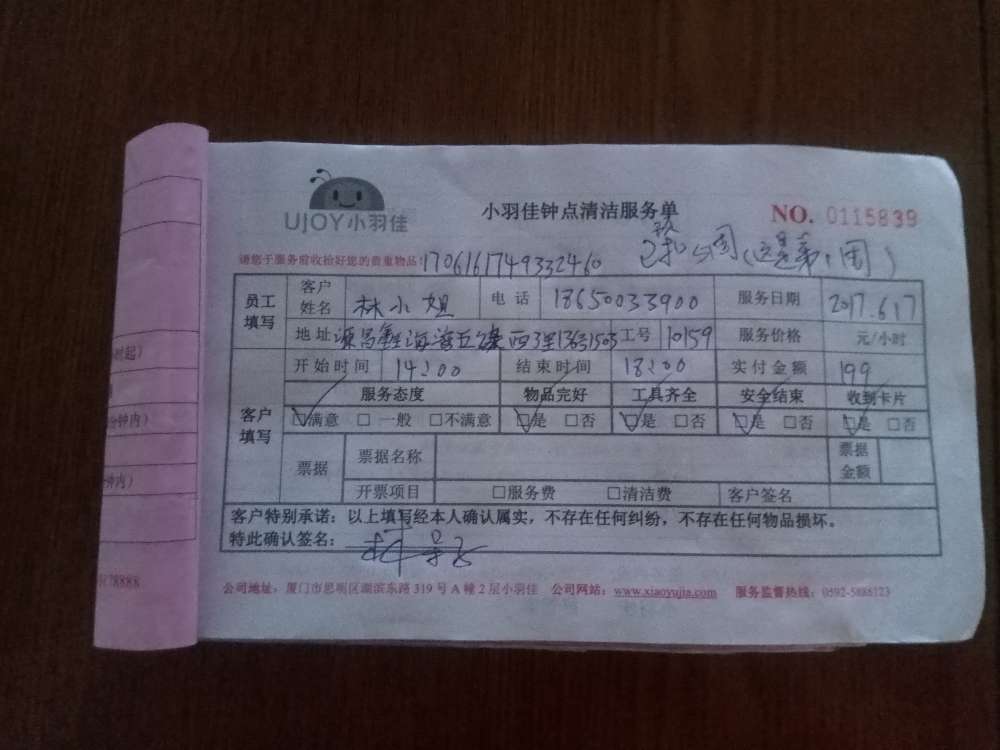 UJOY小羽佳
小羽佳钟点清洁服务单
NO. 0115839
请您于服务前收拾好您的贵重物品: 1706161749332460
员工填写 客户姓名 林小姐 电话 18650033900 服务日期 2017.6.17
地址 源昌鑫海湾五缘西3里136号1503 工号 10159 服务价格 元/小时
开始时间 14:00 结束时间 18:00 实付金额 199
客户填写 服务态度 物品完好 工具齐全 安全结束 收到卡片
☑满意 □一般 □不满意 ☑是 □否 ☑是 □否 ☑是 □否 ☑是 □否
票据 票据名称 票据金额
开票项目 □服务费 □清洁费 客户签名
客户特别承诺：以上填写经本人确认属实，不存在任何纠纷，不存在任何物品损坏。
特此确认签名：
公司地址：厦门市思明区湖滨东路 319 号 A 幢 2 层小羽佳 公司网站：www.xiaoyujia.com 服务监督热线：0592-5886123
时起）
分钟内）
钟内）
78888